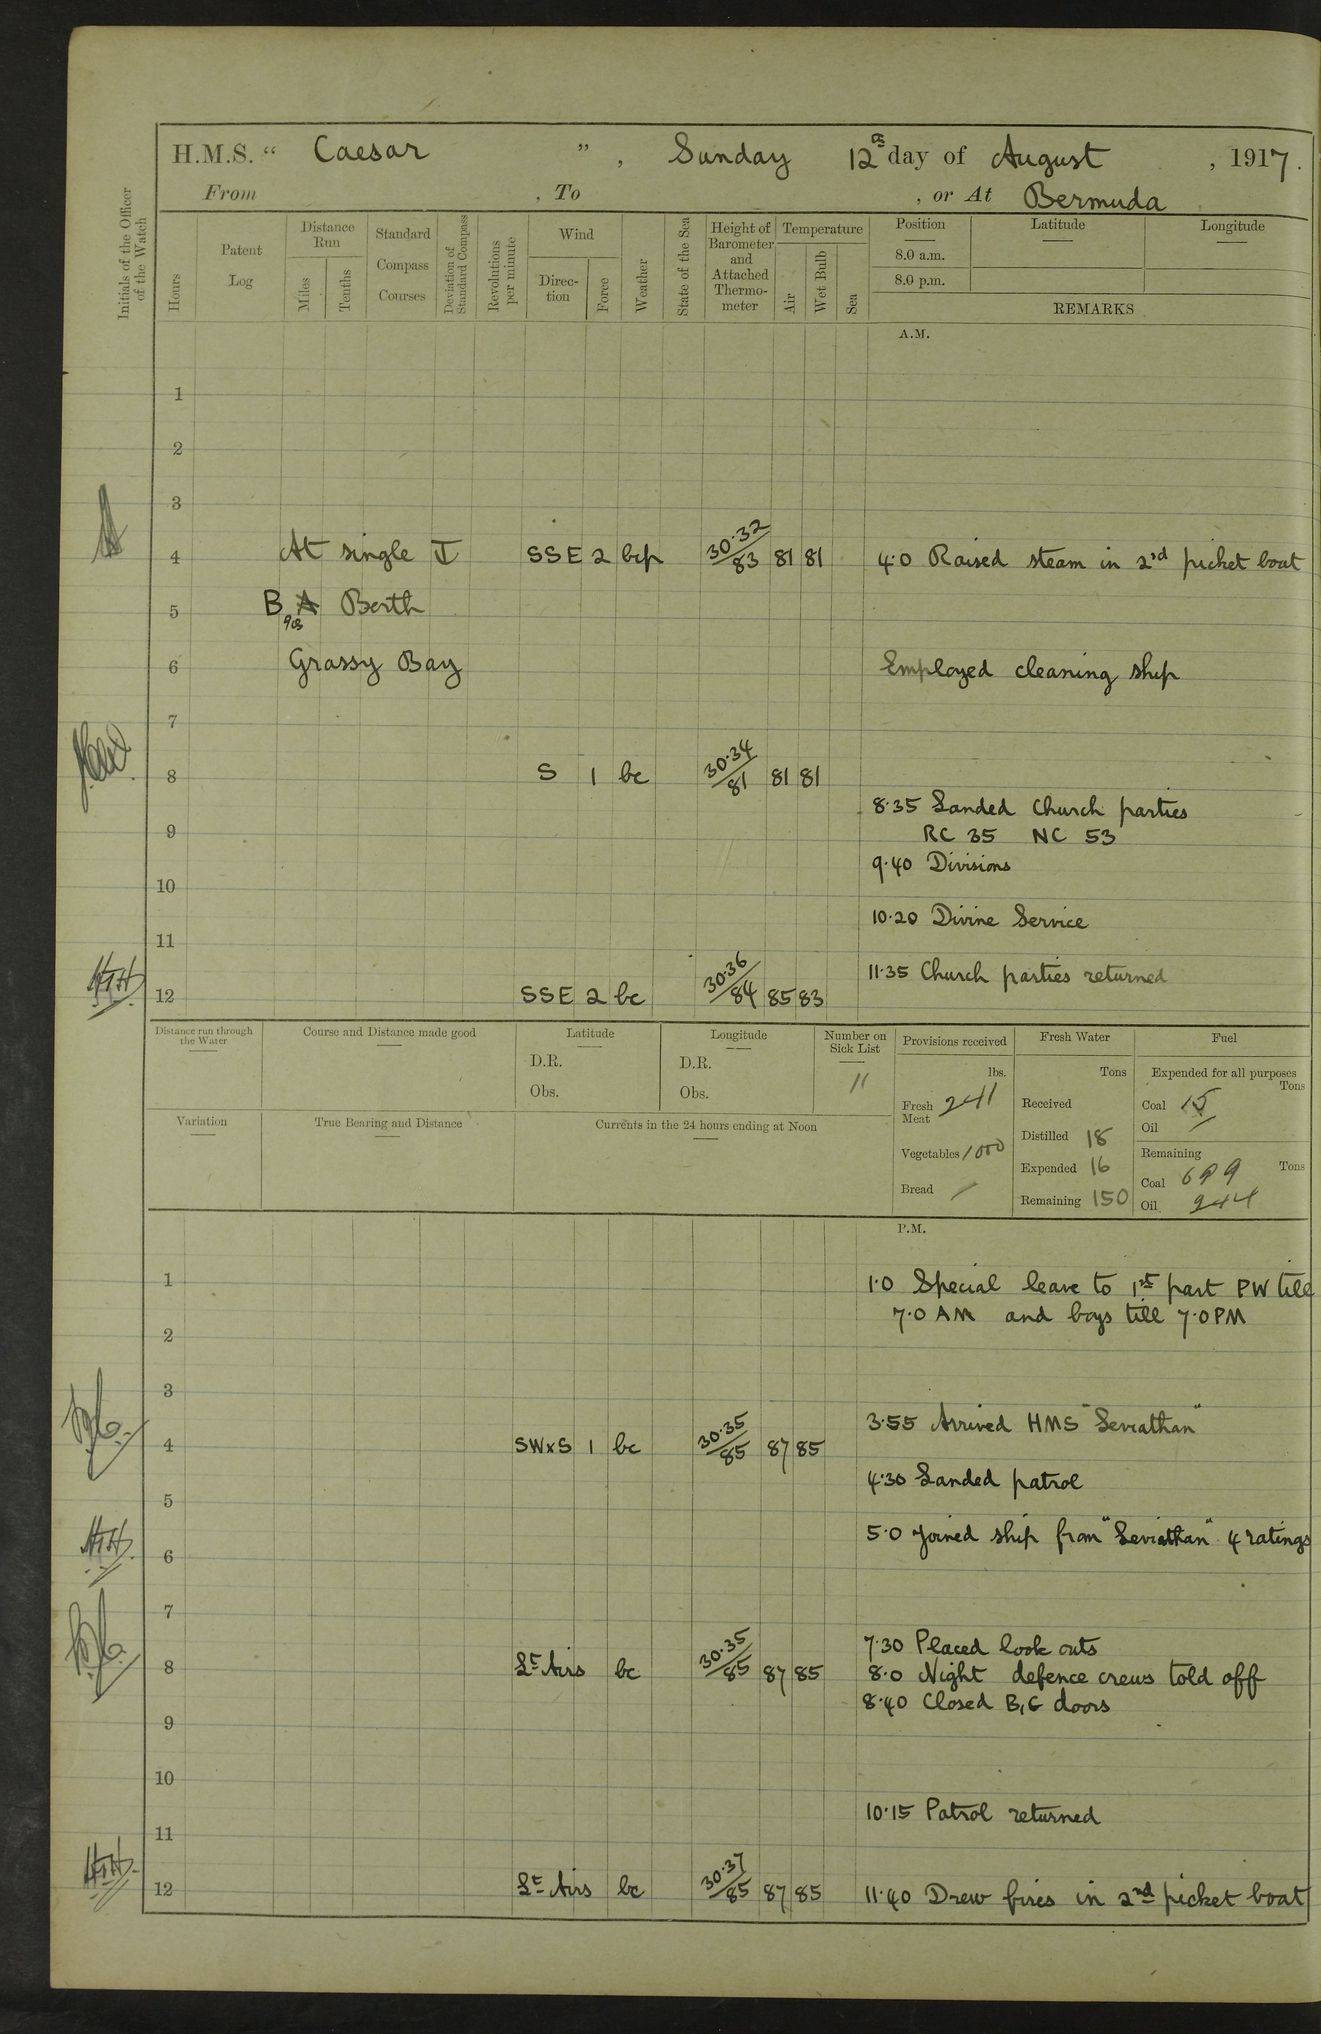 H.M.S. “ Caesar ” , Sunday 12th day of August , 1917.
From , To , or At Bermuda
Initials of the Officer of the Watch
Hours
Patent Log
Distance Run
Miles
Tenths
Standard Compass Courses
Deviation of Standard Compass
Revolutions per minute
Wind
Direc-tion
Force
Weather
State of the Sea
Height of Barometer and Attached Thermo-meter
Temperature
Air
Wet Bulb
Sea
Position
8.0 a.m.
8.0 p.m.
Latitude
Longitude
REMARKS
A.M.
1
2
3
4 At single SSE 2 bcp 30·32/83 81 81 4·0 Raised steam in 2nd picket boat
5 B Berth
6 Grassy Bay Employed cleaning ship
7
8 S 1 bc 30·34/81 81 81
8·35 Landed Church parties
9 RC 35 NC 53
9·40 Divisions
10
10·20 Divine Service
11
11·35 Church parties returned
HTH 12 SSE 2 bc 30·36/84 85 83
Distance run through the Water
Course and Distance made good
Latitude
D.R.
Obs.
Longitude
D.R.
Obs.
Number on Sick List
11
Provisions received
lbs.
Fresh Meat 241
Vegetables 1000
Bread /
Fresh Water
Tons
Received
Distilled 18
Expended 16
Remaining 150
Fuel
Expended for all purposes
Tons
Coal 15
Oil /
Remaining
Tons
Coal 699
Oil 244
Variation
True Bearing and Distance
Currents in the 24 hours ending at Noon
P.M.
1 1·0 Special leave to 1st part PW till
7·0 AM and boys till 7·0 PM
2
3
3·55 Arrived HMS "Leviathan"
4 SWxS 1 bc 30·35/85 87 85
4·30 Landed patrol
5
5·0 Joined ship from "Leviathan" 4 ratings
HTH 6
7
7·30 Placed look outs
8 Lt Airs bc 30·35/85 87 85 8·0 Night defence crews told off
8·40 Closed B, G doors
9
10
10·15 Patrol returned
11
HTH 12 Lt Airs bc 30·37/85 87 85 11·40 Drew fires in 2nd picket boat